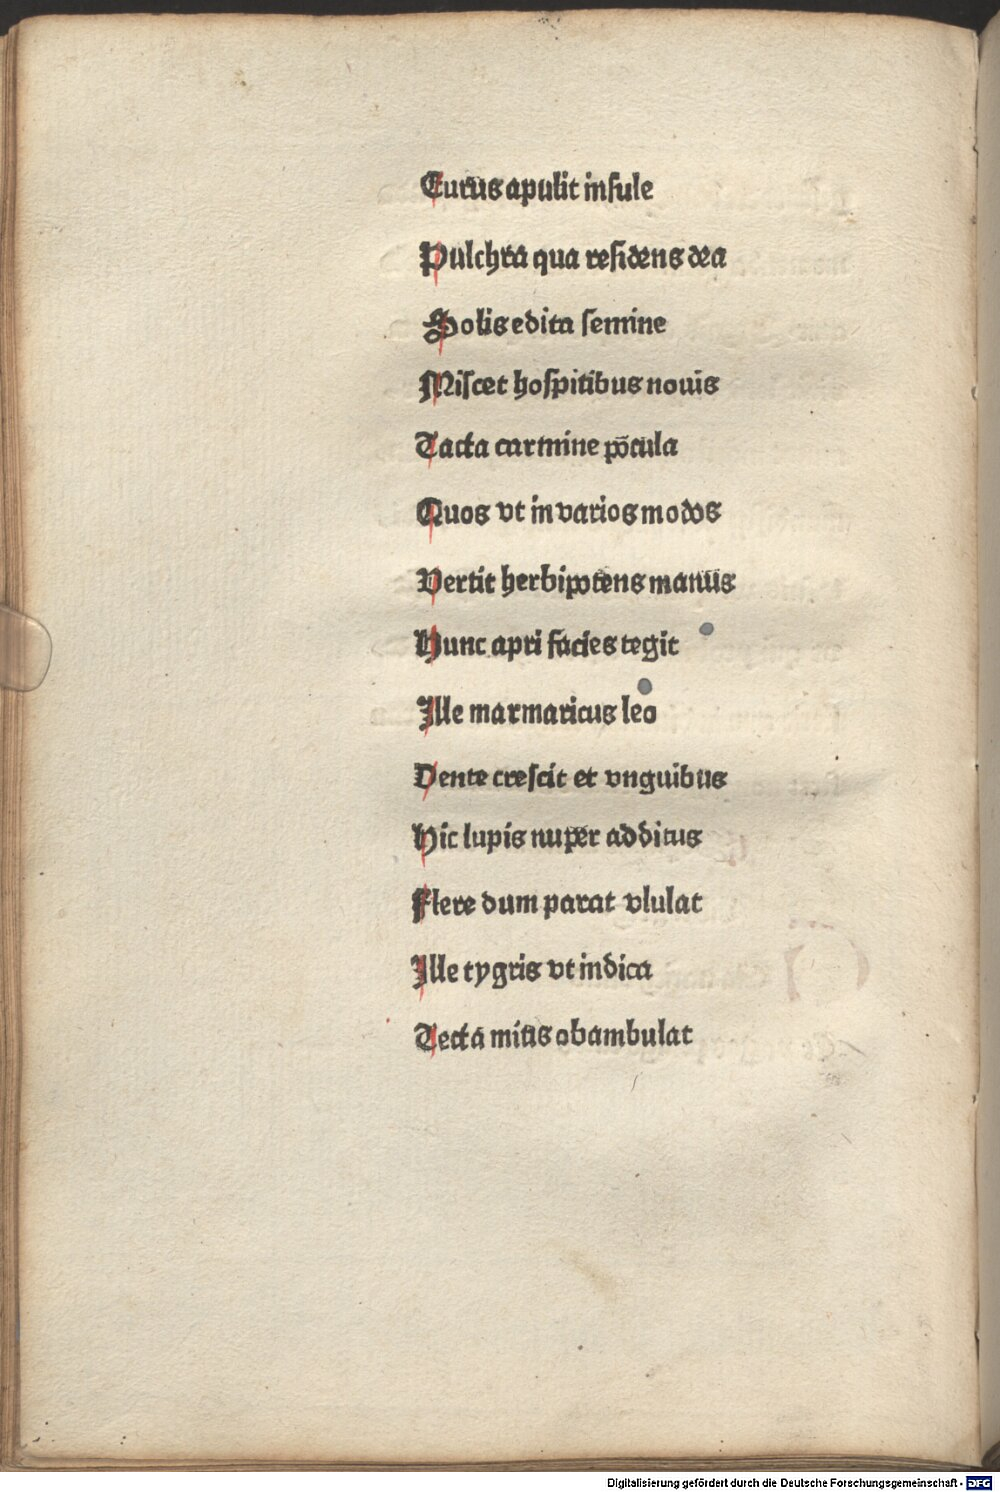 Eurus apulit insule
Pulchra qua residens dea
Solis edita semine
Miscet hospitibus nouis
Tacta carmine pōcula
Quos vt in varios modos
Vertit herbipotens manus
Hunc apri facies tegit
Ille marmaricus leo
Dente crescit et vnguibus
Hic lupis nuper additus
Flere dum parat vlulat
Ille tygris vt indica
Tecta mitis obambulat
Digitalisierung gefördert durch die Deutsche Forschungsgemeinschaft - DFG